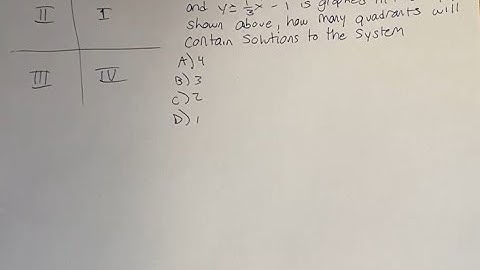 II I
and y ≥ 1/3x - 1 is graphed in
shown above, how many quadrants will
contain solutions to the system
III IV
A) 4
B) 3
C) 2
D) 1